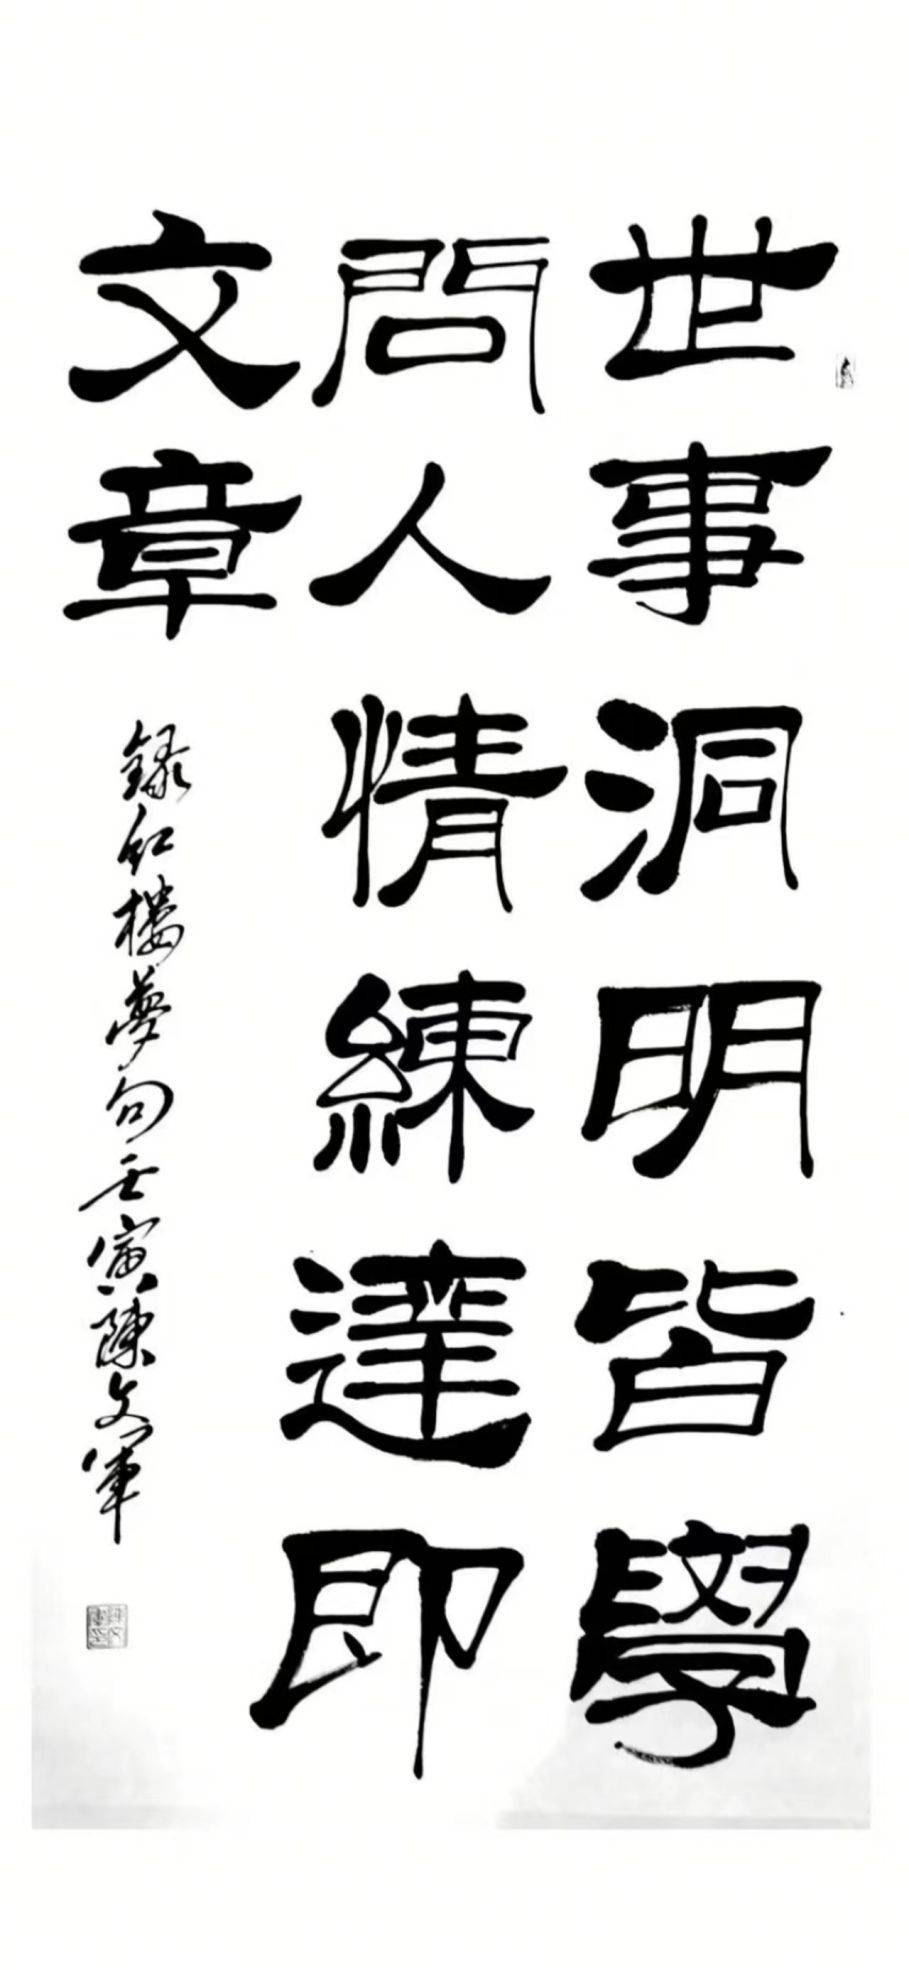 世事洞明皆學
問人情練達即
文章
録紅樓夢句壬寅陳文軍